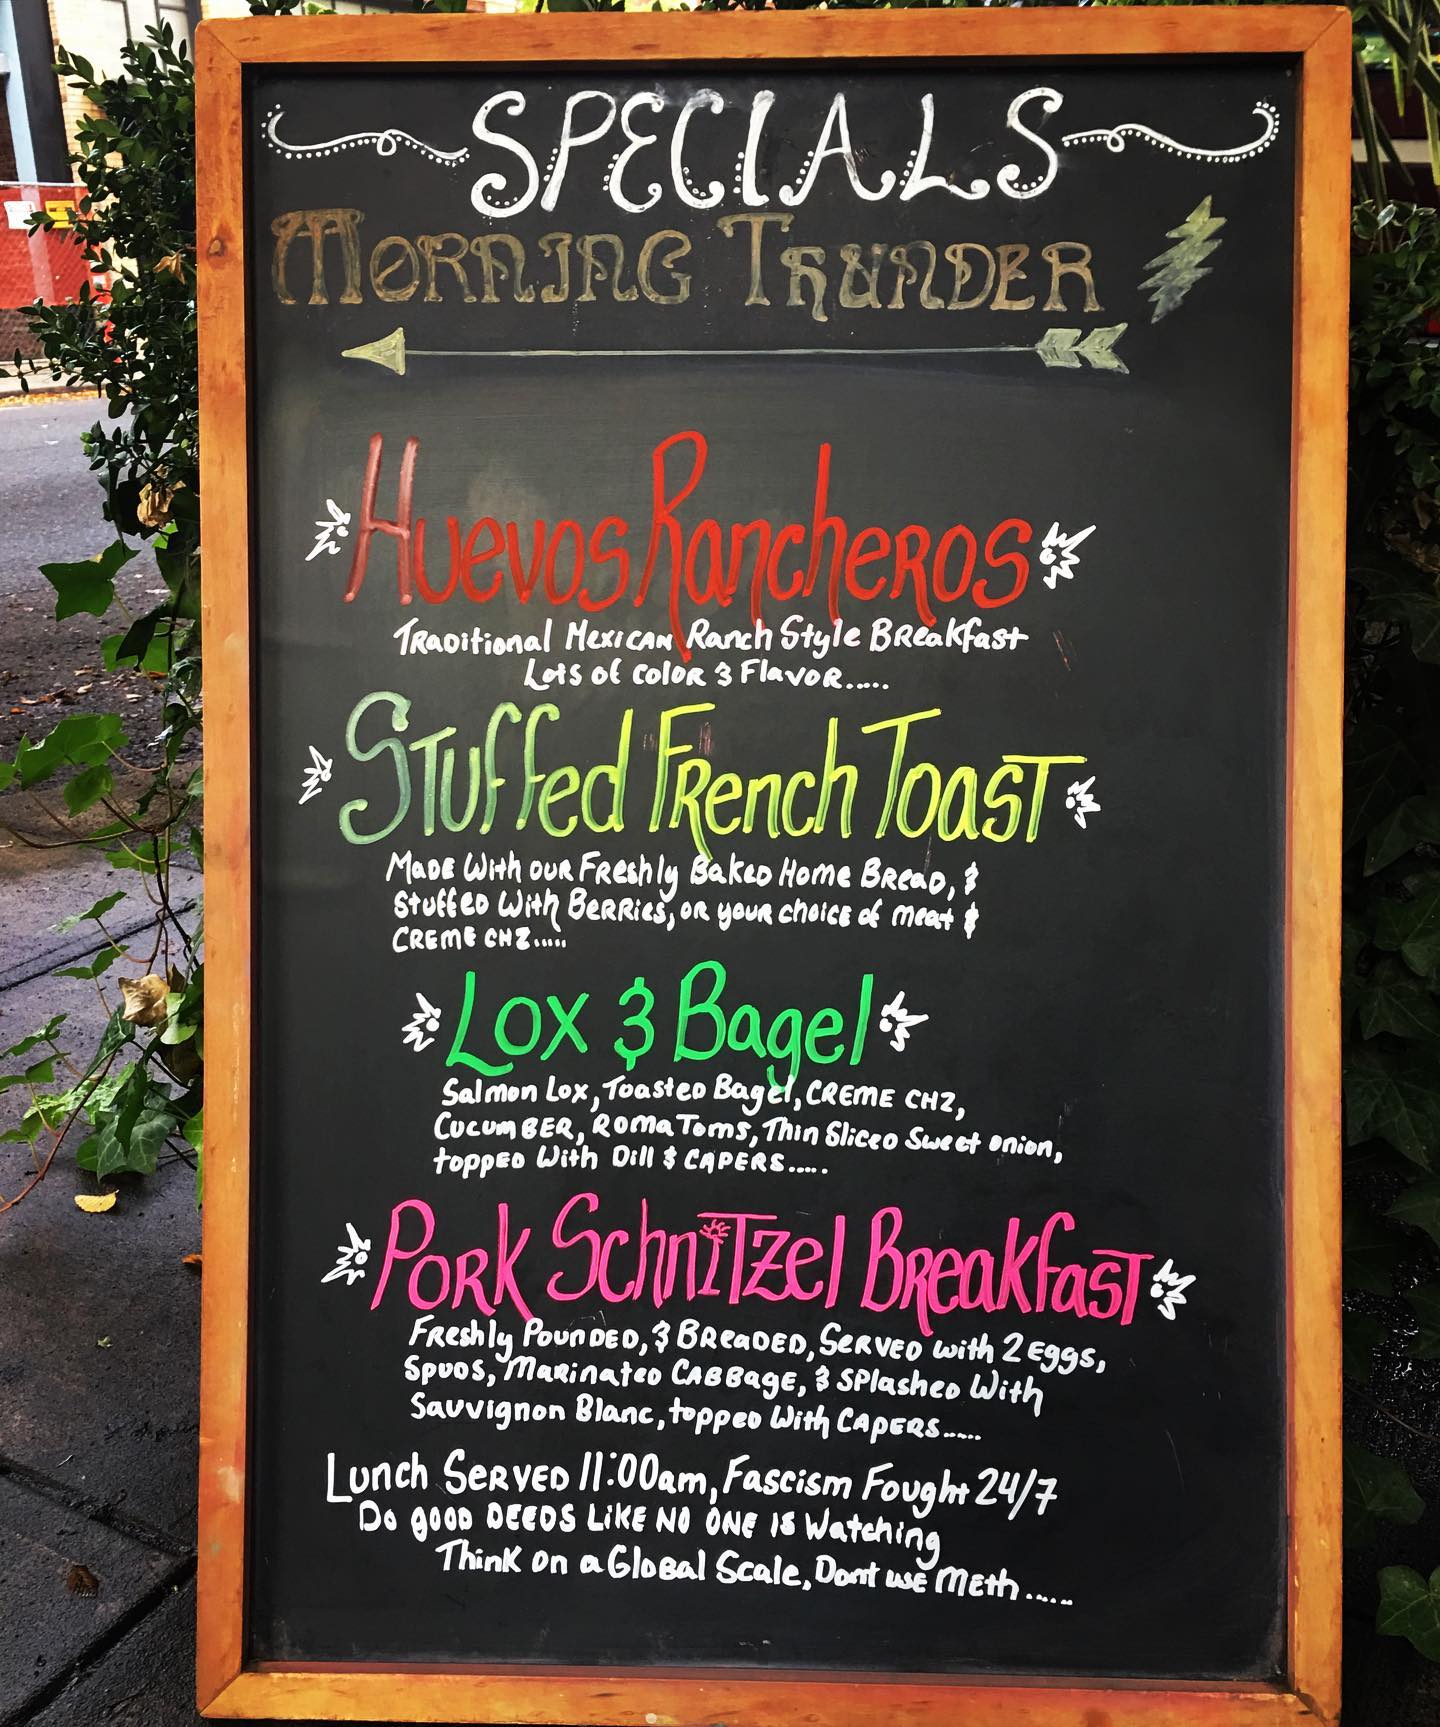 SPECIALS
MORNING THUNDER
Huevos Rancheros
Traditional Mexican Ranch Style Breakfast
Lots of color & Flavor.....
Stuffed French Toast
Made With our Freshly Baked Home Bread, &
Stuffed With Berries, or your choice of meat &
CREME CHZ.....
Lox & Bagel
Salmon Lox, Toasted Bagel, CREME CHZ,
Cucumber, Roma Toms, Thin Sliced Sweet onion,
topped With Dill & CAPERS.....
Pork Schnitzel Breakfast
Freshly Pounded, & Breaded, Served with 2 Eggs,
Spuds, Marinated Cabbage, & Splashed With
Sauvignon Blanc, topped With CAPERS.....
Lunch Served 11:00am, Fascism Fought 24/7
Do good DEEDS LIKE NO ONE IS Watching
Think on a Global Scale, Dont use Meth......